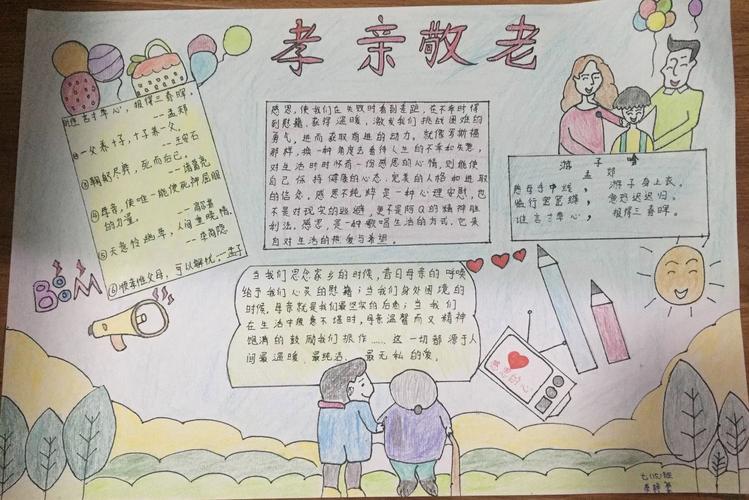 孝亲敬老
谁言寸草心,报得三春晖。
--孟郊
一父养十子,十子养一父。
鞠躬尽瘁,死而后已。
--诸葛亮
④母亲,使唯一能使死神屈服
的力量。
⑤天意怜幽草,人间重晚情。
--李商隐
⑥惟孝顺父母,可以解忧。--孟子
BOOM
感恩,使我们在失败时看到差距,在不幸时得
到慰藉、获得温暖,激发我们挑战困难的
勇气,进而获取前进的动力。就像罗斯福
那样,换一种角度去看待人生的不幸和失意,
对生活时时怀有一份感恩的心情,则能使
自己保持健康的心态、完美的人格和进取
的信念。感恩不纯粹是一种心理安慰,也
不是对现实的逃避,更不是阿Q的精神胜
利法。感恩,是一种歌唱生活的方式,它来
自对生活的热爱与希望。
游子吟
孟郊
慈母手中线,游子身上衣。
临行密密缝,意恐迟迟归。
谁言寸草心,报得三春晖。
当我们思念家乡的时候,昔日母亲的呼唤
给予我们心灵的慰藉;当我们身处困境的
时候,母亲就是我们最坚实的后盾;当我们
在生活中疲惫不堪时,母亲温馨而又精神
饱满的鼓励我们振作……这一切都源于人
间最温暖、最纯洁、最无私的爱。
感恩的心